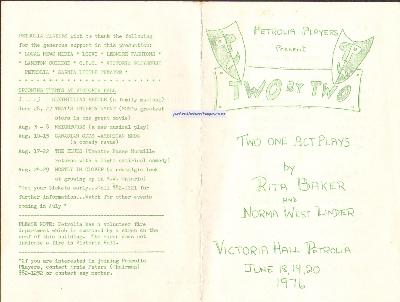 PETROLIA PLAYERS wish to thank the following
for the generous support in this production:
* LOCAL NEWS MEDIA * LEGWI * LEONARD FASHIONS *
* LAMBTON OUTDOOR * C.F.C. * VICTORIA RESTAURANT
PETROLIA * SARNIA LITTLE THEATRE *
UPCOMING EVENTS AT VICTORIA HALL
(a family musical)
June 26, 27
stars in one great movie)
Aug. 3 - 8 (a new musical play)
Aug. 10-15 CANADIAN GOTHIC - AMERICAN MODERN
(a comedy revue)
Aug. 17-22 (Theatre Passe Muraille
returns with a light satirical comedy)
Aug. 24-29 (a nostalgic look
at growing up in S.W. Ontario)
*Get your tickets early...Call 882-1221 for
further information...Watch for other events
coming in July *
PLEASE NOTE: Petrolia has a volunteer fire
department which is summoned by a siren on the
roof of this building. The siren does not
indicate a fire in Victoria Hall.
*If you are interested in joining Petrolia
Players, contact Craig Peters (Chairman)
882-1292 or contact any member.
PETROLIA PLAYERS
Present
TWO BY TWO
TWO ONE ACT PLAYS
by
RITA BAKER
AND
NORMA WEST LINDER
VICTORIA HALL PETROLIA
JUNE 18, 19, 20
1976